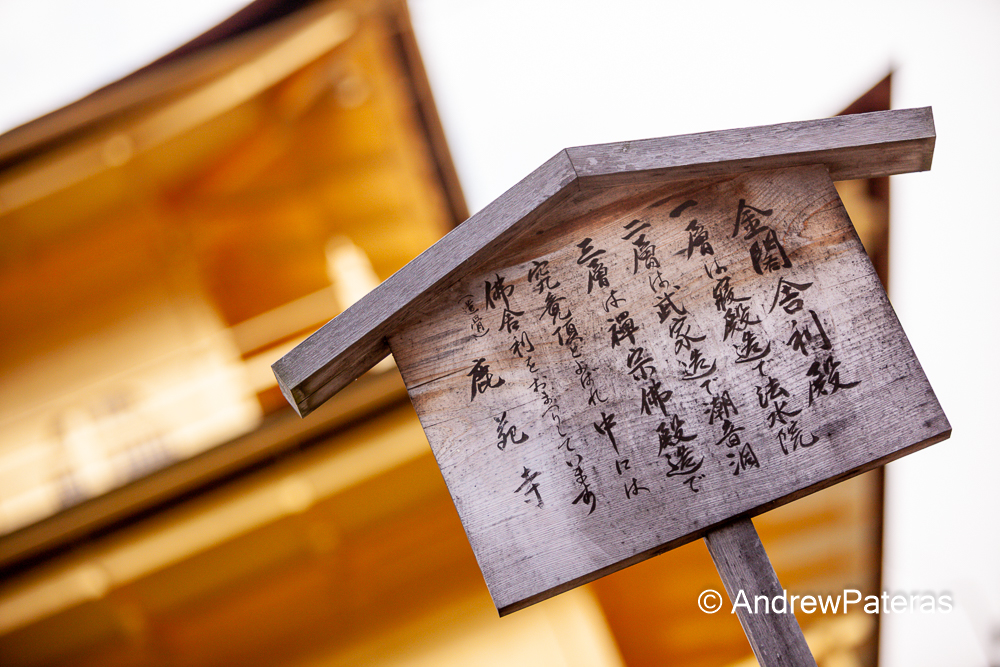 金閣舎利殿
一層は寝殿造で法水院
二層は武家造で潮音洞
三層は禅宗佛殿造で
究竟頂とよばれ中には
佛舎利をおまつりしています
鹿苑寺
© AndrewPateras